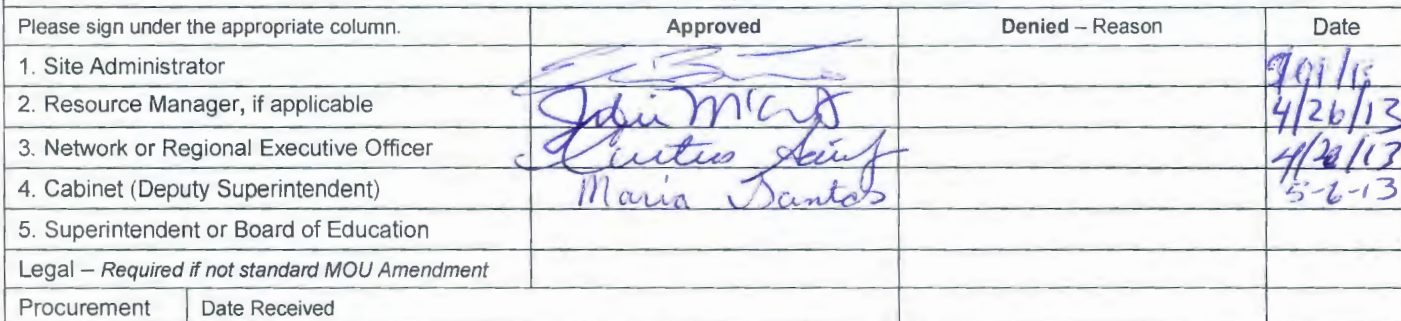 Please sign under the appropriate column. Approved Denied – Reason Date
1. Site Administrator
2. Resource Manager, if applicable 4/26/13
3. Network or Regional Executive Officer
4. Cabinet (Deputy Superintendent) Maria Santos 5-6-13
5. Superintendent or Board of Education
Legal – Required if not standard MOU Amendment
Procurement Date Received